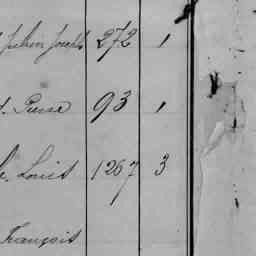 Joseph 272 1
Pierre 93 1
Louis 1267 3
François